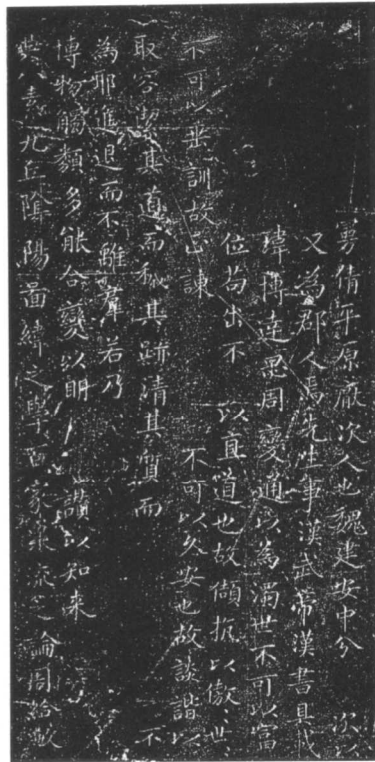 曼倩平原厥次人也魏建安中分 次以
又為郡人焉先生事漢武帝漢書具代
瑋博達思周變通以為濁世不可以富
位苟出不 以直道也故傾抗以傲〻世〻
不可以垂訓故正諫 不可以久安也故談諧以
取容潔其道而穢其跡清其質而 不
為邪進退而不離羣若乃
博物觸類多能合變以明 讚以知来
典八素九丘陰陽啚緯之學百家衆流之論周給敏